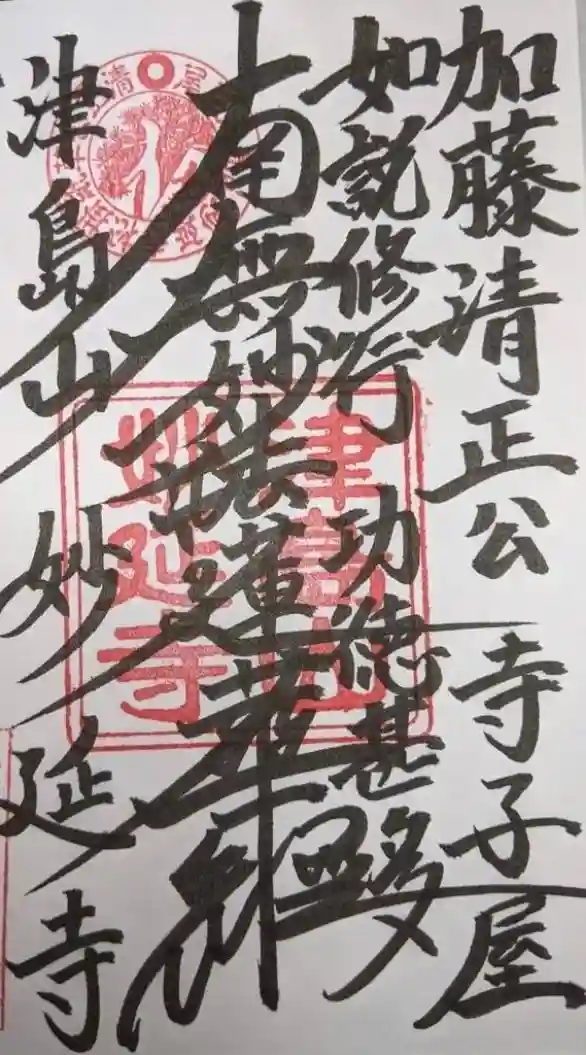 加藤清正公 寺子屋
如説修行 功徳甚多
南無妙法蓮華経
津島山 妙延寺
津島山
妙延寺